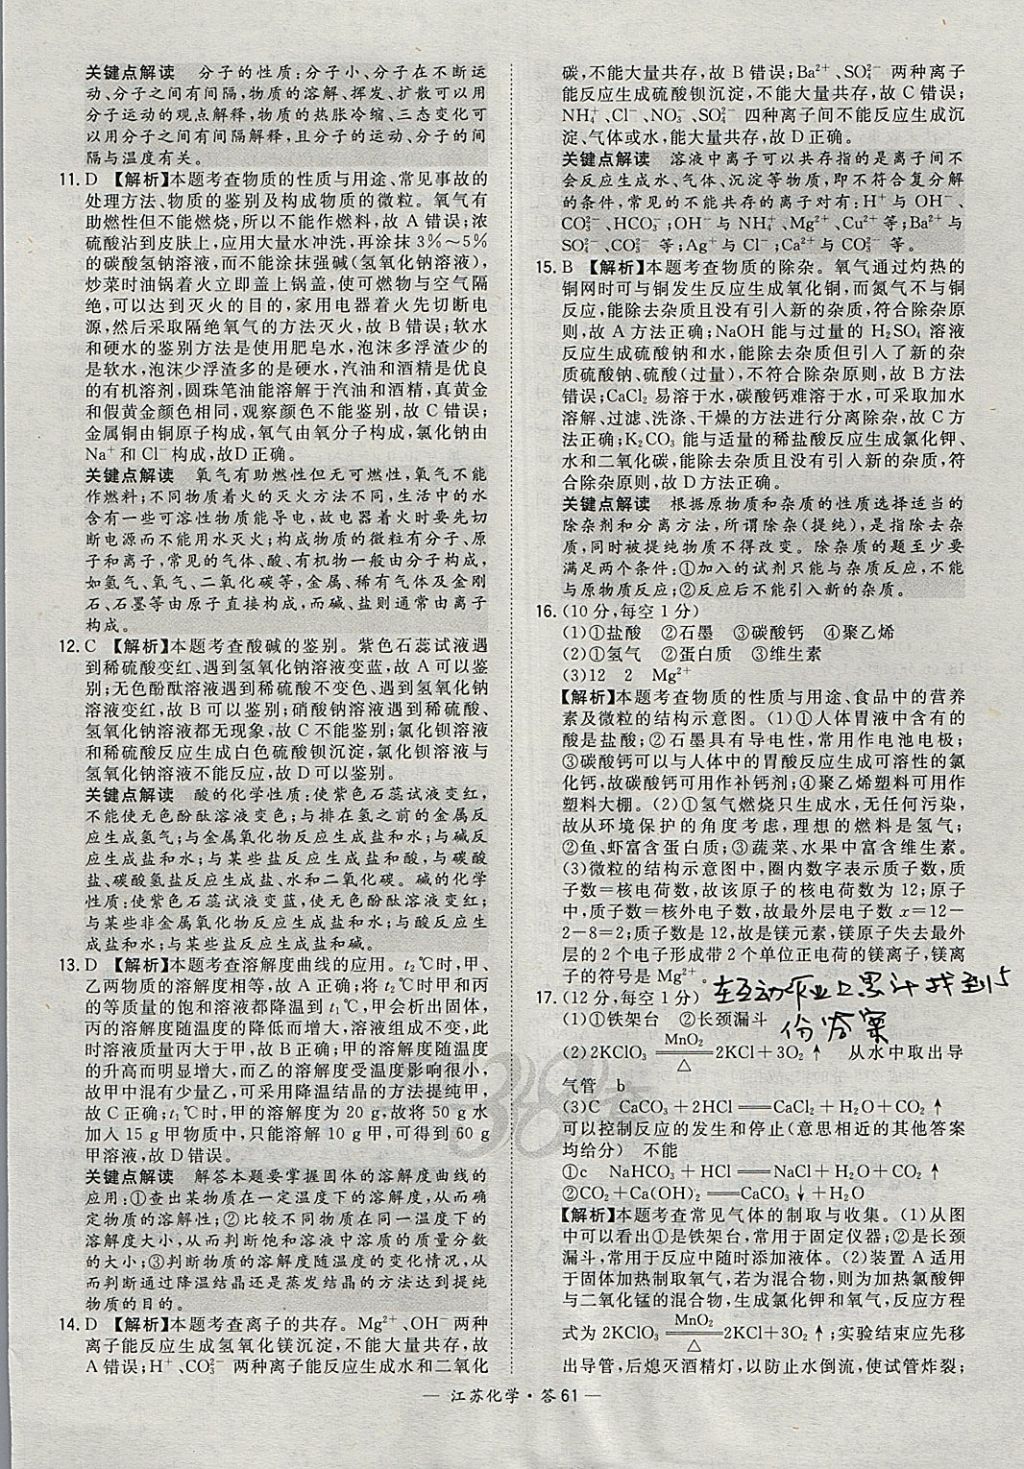 关键点解读 分子的性质:分子小、分子在不断运
动、分子之间有间隔,物质的溶解、挥发、扩散可以用
分子运动的观点解释,物质的热胀冷缩、三态变化可
以用分子之间有间隔解释,且分子的运动、分子的间
隔与温度有关。
11. D 【解析】本题考查物质的性质与用途、常见事故的
处理方法、物质的鉴别及构成物质的微粒。氧气有
助燃性但不能燃烧,所以不能作燃料,故 A 错误;浓
硫酸沾到皮肤上,应用大量水冲洗,再涂抹 3%～5%
的碳酸氢钠溶液,而不能涂抹强碱(氢氧化钠溶液),
炒菜时油锅着火立即盖上锅盖,使可燃物与空气隔
绝,可以达到灭火的目的,家用电器着火先切断电
源,然后采取隔绝氧气的方法灭火,故 B 错误;软水
和硬水的鉴别方法是使用肥皂水,泡沫多浮渣少的
是软水,泡沫少浮渣多的是硬水,汽油和酒精是优良
的有机溶剂,圆珠笔油能溶解于汽油和酒精,真黄金
和假黄金颜色相同,观察颜色不能鉴别,故 C 错误;
金属铜由铜原子构成,氧气由氧分子构成,氯化钠由
Na⁺ 和 Cl⁻ 构成,故D 正确。
关键点解读 氧气有助燃性但无可燃性,氧气不能
作燃料;不同物质着火的灭火方法不同,生活中的水
含有一些可溶性物质能导电,故电器着火时要先切
断电源而不能用水灭火;构成物质的微粒有分子、原
子和离子,常见的气体、酸、有机物一般由分子构成,
如氢气、氧气、二氧化碳等,金属、稀有气体及金刚
石、石墨等由原子直接构成,而碱、盐则通常由离子
构成。
12. C 【解析】本题考查酸碱的鉴别。紫色石蕊试液遇
到稀硫酸变红、遇到氢氧化钠溶液变蓝,故 A 可以鉴
别;无色酚酞溶液遇到稀硫酸不变色、遇到氢氧化钠
溶液变红,故 B 可以鉴别;硝酸钠溶液遇到稀硫酸、
氢氧化钠溶液都无现象,故 C 不能鉴别;氯化钡溶液
和稀硫酸反应生成白色硫酸钡沉淀,氯化钡溶液与
氢氧化钠溶液不能反应,故 D 可以鉴别。
关键点解读 酸的化学性质:使紫色石蕊试液变红,
不能使无色酚酞溶液变色;与排在氢之前的金属反
应生成氢气;与金属氧化物反应生成盐和水;与碱反
应生成盐和水;与某些盐反应生成盐和酸,与碳酸
盐、碳酸氢盐反应生成盐、水和二氧化碳。碱的化学
性质:使紫色石蕊试液变蓝,使无色酚酞溶液变红;
与某些非金属氧化物反应生成盐和水;与酸反应生
成盐和水;与某些盐反应生成盐和碱。
13. D 【解析】本题考查溶解度曲线的应用。t₂℃时,甲、
乙两物质的溶解度相等,故 A 正确;将 t₂℃时甲和丙
的等质量的饱和溶液都降温到 t₁℃,甲会析出固体,
丙的溶解度随温度的降低而增大,溶液组成不变,此
时溶液质量丙大于甲,故 B 正确;甲的溶解度随温度
的升高而明显增大,而乙的溶解度受温度影响很小,
故甲中混有少量乙,可采用降温结晶的方法提纯甲,
故 C 正确;t₁℃时,甲的溶解度为 20 g,故将 50 g 水
加入 15 g 甲物质中,只能溶解 10 g 甲,可得到 60 g
甲溶液,故 D 错误。
关键点解读 解答本题要掌握固体的溶解度曲线的
应用:①查出某物质在一定温度下的溶解度,从而确
定物质的溶解性;②比较不同物质在同一温度下的
溶解度大小,从而判断饱和溶液中溶质的质量分数
的大小;③判断物质的溶解度随温度的变化情况,从
而判断通过降温结晶还是蒸发结晶的方法达到提纯
物质的目的。
14. D 【解析】本题考查离子的共存。Mg²⁺、OH⁻ 两种
离子能反应生成氢氧化镁沉淀,不能大量共存,故
A 错误;H⁺、CO₃²⁻ 两种离子能反应生成水和二氧化
碳,不能大量共存,故 B 错误;Ba²⁺、SO₄²⁻ 两种离子
能反应生成硫酸钡沉淀,不能大量共存,故 C 错误;
NH₄⁺、Cl⁻、NO₃⁻、Na⁺ 四种离子间不能反应生成沉
淀、气体或水,能大量共存,故 D 正确。
关键点解读 溶液中离子可以共存指的是离子间不
会反应生成水、气体、沉淀等物质,即不符合复分解
的条件,常见的不能共存的离子对有:H⁺ 与 OH⁻、
CO₃²⁻、HCO₃⁻;OH⁻ 与 NH₄⁺、Mg²⁺、Cu²⁺ 等;Ba²⁺ 与
SO₄²⁻、CO₃²⁻ 等;Ag⁺ 与 Cl⁻;Ca²⁺ 与 CO₃²⁻ 等。
15. B 【解析】本题考查物质的除杂。氧气通过灼热的
铜网时可与铜发生反应生成氧化铜,而氮气不与铜
反应,能除去杂质且没有引入新的杂质,符合除杂原
则,故 A 方法正确;NaOH 能与过量的 H₂SO₄ 溶液
反应生成硫酸钠和水,能除去杂质但引入了新的杂
质硫酸钠、硫酸(过量),不符合除杂原则,故 B 方法
错误;CaCl₂ 易溶于水,碳酸钙难溶于水,可采取加水
溶解、过滤、洗涤、干燥的方法进行分离除杂,故 C 方
法正确;K₂CO₃ 能与适量的稀盐酸反应生成氯化钾、
水和二氧化碳,能除去杂质且没有引入新的杂质,符
合除杂原则,故 D 方法正确。
关键点解读 根据原物质和杂质的性质选择适当的
除杂剂和分离方法,所谓除杂(提纯),是指除去杂
质,同时被提纯物质不得改变。除杂质的题至少要
满足两个条件:①加入的试剂只能与杂质反应,不能
与原物质反应;②反应后不能引入新的杂质。
16. (10 分,每空 1 分)
(1)①盐酸 ②石墨 ③碳酸钙 ④聚乙烯
(2)①氢气 ②蛋白质 ③维生素
(3)12 2 Mg²⁺
【解析】本题考查物质的性质与用途、食品中的营养
素及微粒的结构示意图。(1)①人体胃液中含有的
酸是盐酸;②石墨具有导电性,常用作电池电极;
③碳酸钙可以与人体中的胃酸反应生成可溶性的氯
化钙,故碳酸钙可用作补钙剂;④聚乙烯塑料可用作
塑料大棚。(2)①氢气燃烧只生成水,无任何污染,
故从环境保护的角度考虑,理想的燃料是氢气;
②鱼、虾富含蛋白质;③蔬菜、水果中富含维生素。
(3)微粒的结构示意图中,圈内数字表示质子数,质
子数=核电荷数,故该原子的核电荷数为 12;原子
中,质子数=核外电子数,故最外层电子数 x=12－
2－8=2;质子数是 12,故是镁元素,镁原子失去最外
层的 2 个电子形成带 2 个单位正电荷的镁离子,镁离
子的符号是 Mg²⁺。
在互动作业上累计找到15
17. (12 分,每空 1 分)
份答案
(1)①铁架台 ②长颈漏斗
(2)2KClO₃ MnO₂══△ 2KCl+3O₂↑ 从水中取出导
气管 b
(3)C CaCO₃+2HCl══CaCl₂+H₂O+CO₂↑
可以控制反应的发生和停止(意思相近的其他答案
均给分) 不能
①c NaHCO₃+HCl══NaCl+H₂O+CO₂↑
②CO₂+Ca(OH)₂══CaCO₃↓+H₂O
【解析】本题考查常见气体的制取与收集。(1)从图
中可以看出①是铁架台,常用于固定仪器;②是长颈
漏斗,常用于反应中随时添加液体。(2)装置 A 适用
于固体加热制取氧气,若为混合物,则为加热氯酸钾
与二氧化锰的混合物,生成氯化钾和氧气,反应方程
式为 2KClO₃ MnO₂══△ 2KCl+3O₂↑;实验结束应先移
出导管,后熄灭酒精灯,以防止水倒流,使试管炸裂;
— 江苏化学·答 61 —